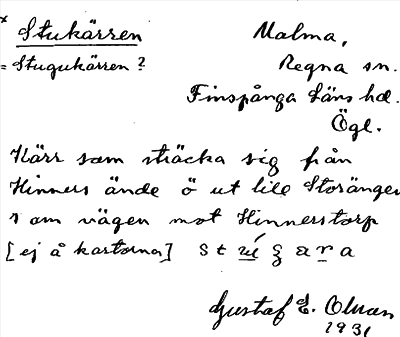 × Stukärren
= Stugukärren?
Malma,
Regna sn.
Finspånga läns hd.
Ögl.
Kärr som sträcka sig från
Hinners ände ö ut till Storängen
s om vägen mot Hinnerstorp
[ej å kartorna]
Gustaf E. Olman
1931